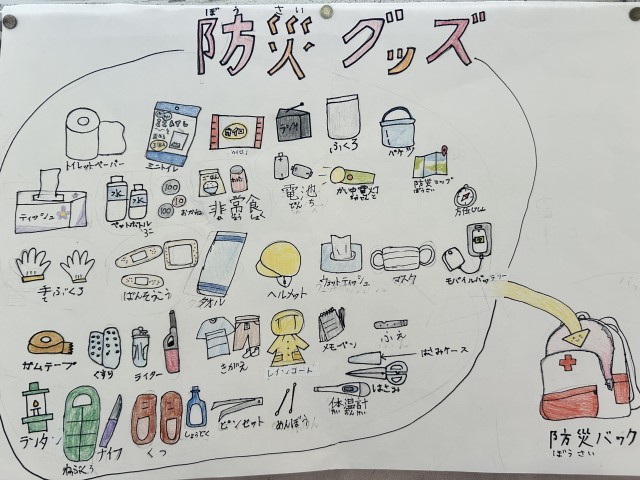 ぼうさい
防災グッズ
トイレットペーパー
ミニトイレ
カイロ
ラジオ
ふくろ
バケツ
ティッシュ
水
水
ペットボトル
100
100
10
おかね
非常食
電池
でんち
かい中電灯
防災マップ
ぼうさい
方位じしん
手ぶくろ
て
ばんそうこう
タオル
ヘルメット
ウェットティッシュ
マスク
モバイルバッテリー
ガムテープ
くすり
ライター
きがえ
レインコート
メモ・ペン
ふえ
はさみケース
はさみ
ランタン
ねぶくろ
ナイフ
くつ
しょうどく
ピンセット
めんぼう
体温計
防災バック
ぼうさい